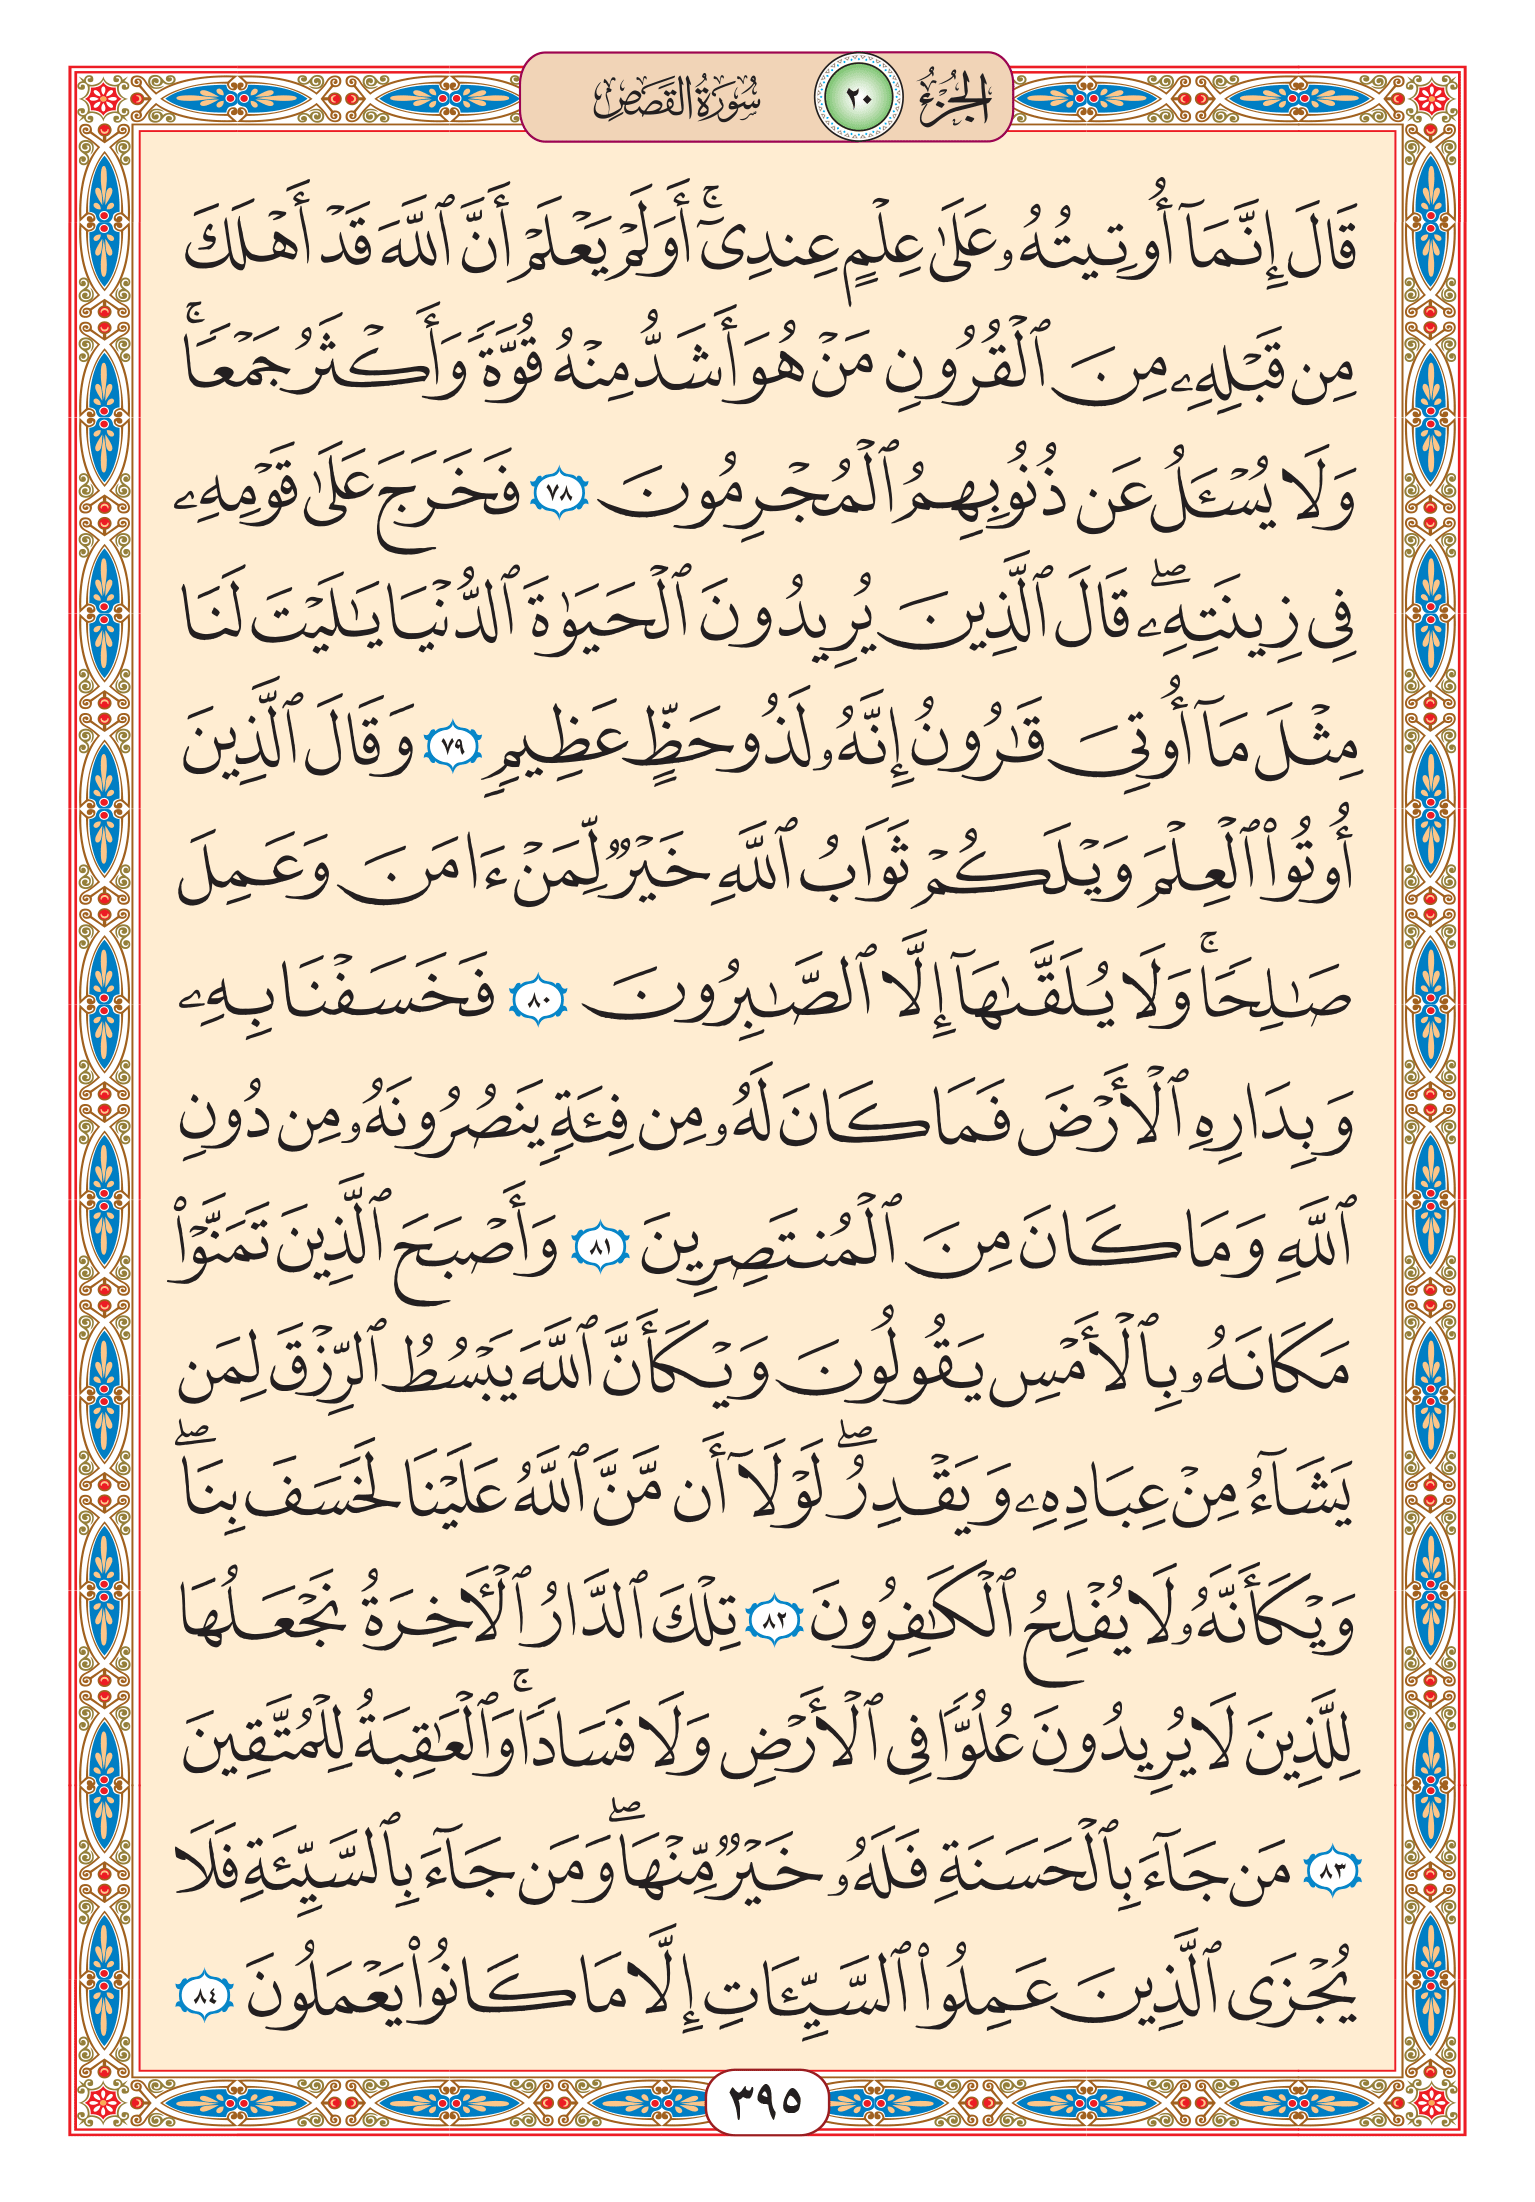 الجزء ٢٠ سورة القصص
قَالَ إِنَّمَآ أُوتِيتُهُۥ عَلَىٰ عِلْمٍ عِندِىٓ ۚ أَوَلَمْ يَعْلَمْ أَنَّ ٱللَّهَ قَدْ أَهْلَكَ
مِن قَبْلِهِۦ مِنَ ٱلْقُرُونِ مَنْ هُوَ أَشَدُّ مِنْهُ قُوَّةً وَأَكْثَرُ جَمْعًا ۚ
وَلَا يُسْـَٔلُ عَن ذُنُوبِهِمُ ٱلْمُجْرِمُونَ ٧٨ فَخَرَجَ عَلَىٰ قَوْمِهِۦ
فِى زِينَتِهِۦ ۖ قَالَ ٱلَّذِينَ يُرِيدُونَ ٱلْحَيَوٰةَ ٱلدُّنْيَا يَـٰلَيْتَ لَنَا
مِثْلَ مَآ أُوتِىَ قَـٰرُونُ إِنَّهُۥ لَذُو حَظٍّ عَظِيمٍ ٧٩ وَقَالَ ٱلَّذِينَ
أُوتُوا۟ ٱلْعِلْمَ وَيْلَكُمْ ثَوَابُ ٱللَّهِ خَيْرٌ لِّمَنْ ءَامَنَ وَعَمِلَ
صَـٰلِحًا ۚ وَلَا يُلَقَّىٰهَآ إِلَّا ٱلصَّـٰبِرُونَ ٨٠ فَخَسَفْنَا بِهِۦ
وَبِدَارِهِ ٱلْأَرْضَ فَمَا كَانَ لَهُۥ مِن فِئَةٍ يَنصُرُونَهُۥ مِن دُونِ
ٱللَّهِ وَمَا كَانَ مِنَ ٱلْمُنتَصِرِينَ ٨١ وَأَصْبَحَ ٱلَّذِينَ تَمَنَّوْا۟
مَكَانَهُۥ بِٱلْأَمْسِ يَقُولُونَ وَيْكَأَنَّ ٱللَّهَ يَبْسُطُ ٱلرِّزْقَ لِمَن
يَشَآءُ مِنْ عِبَادِهِۦ وَيَقْدِرُ ۖ لَوْلَآ أَن مَّنَّ ٱللَّهُ عَلَيْنَا لَخَسَفَ بِنَا ۖ
وَيْكَأَنَّهُۥ لَا يُفْلِحُ ٱلْكَـٰفِرُونَ ٨٢ تِلْكَ ٱلدَّارُ ٱلْـَٔاخِرَةُ نَجْعَلُهَا
لِلَّذِينَ لَا يُرِيدُونَ عُلُوًّا فِى ٱلْأَرْضِ وَلَا فَسَادًا ۚ وَٱلْعَـٰقِبَةُ لِلْمُتَّقِينَ
٨٣ مَن جَآءَ بِٱلْحَسَنَةِ فَلَهُۥ خَيْرٌ مِّنْهَا ۖ وَمَن جَآءَ بِٱلسَّيِّئَةِ فَلَا
يُجْزَى ٱلَّذِينَ عَمِلُوا۟ ٱلسَّيِّـَٔاتِ إِلَّا مَا كَانُوا۟ يَعْمَلُونَ ٨٤
٣٩٥